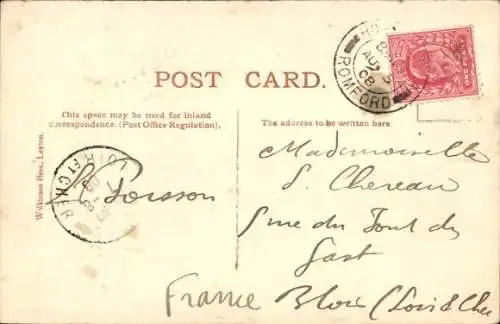 POST CARD.
This space may be used for inland
correspondence. (Post Office Regulation).
The address to be written here
Wilkinson Bros, Leyton.
ROMFORD
AU
08
ONE PENNY
LOIR-ET-CHER
Poisson
Mademoiselle
S. Chereau
rue du Pont du
Gast
France Blois (Loir & Cher